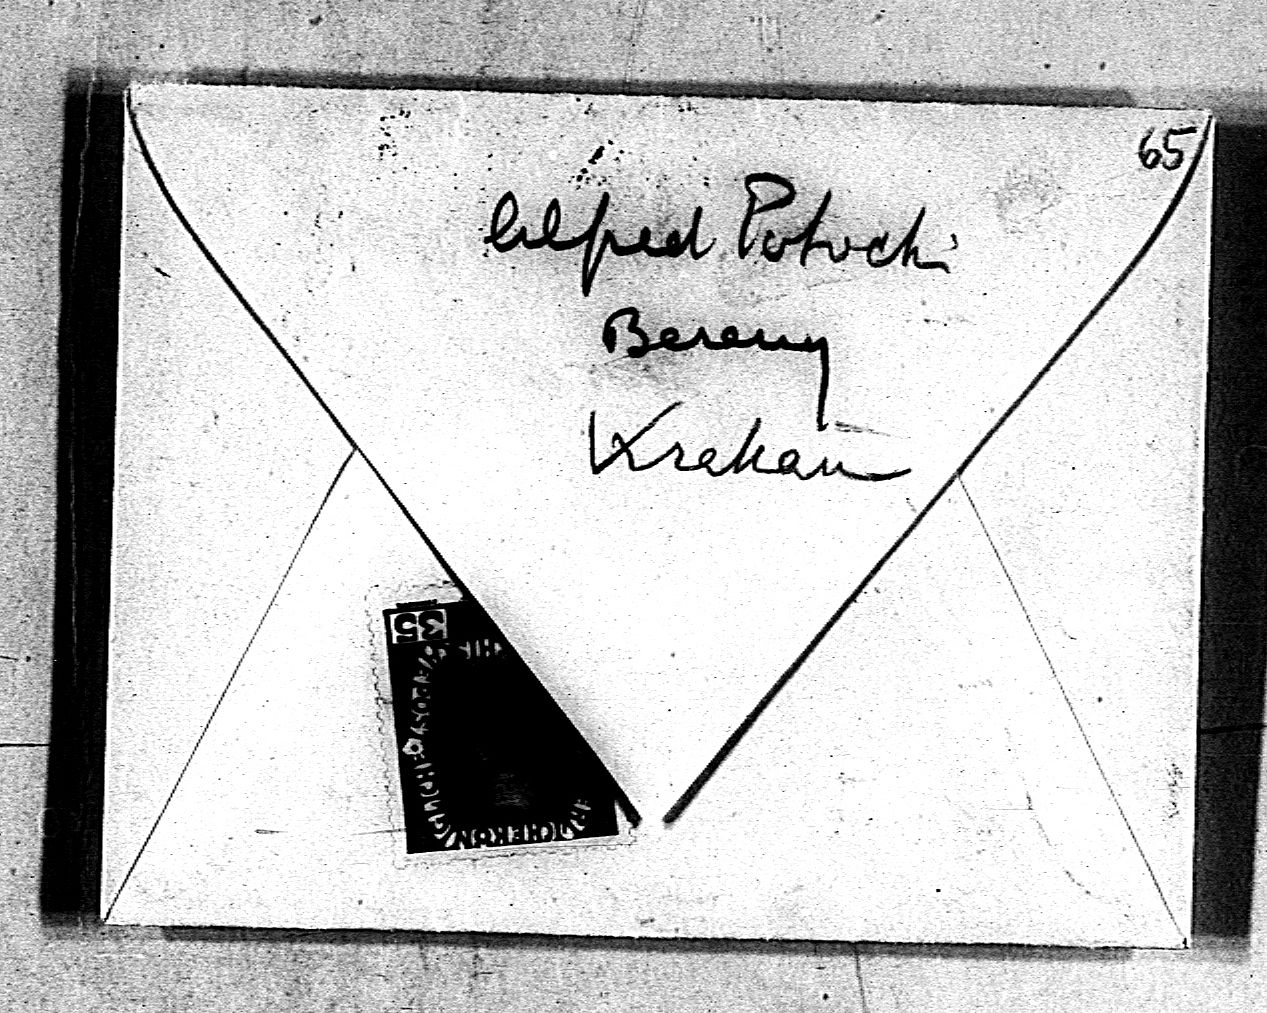 65
Alfred Potocki
Bereny
Krakau
35